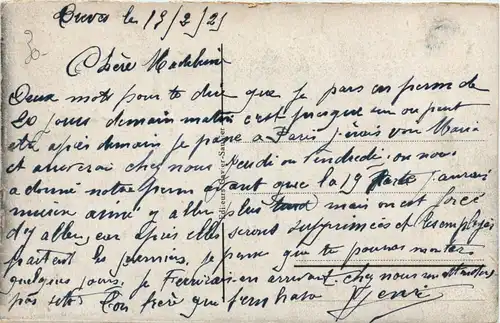 le 19/2/21
Chère Madeleine
Deux mots pour te dire que je pars en perm de
20 jours demain matin c'est presque sur ou peut
etre après demain je passe a Paris j'irais voir Maria
et arriverai chez nous Jeudi ou Vendredi, on nous
a donné notre perm avant que la 19 parte j'aurais
mieux aimé y aller plus tard mais on est forcé
d'y aller, car après elles seront supprimées et
partent les premiers, je pense que tu pourras monter
quelques jours, je t'écrirai en arrivant chez nous
pas Ton frère qui t'embrasse Henri